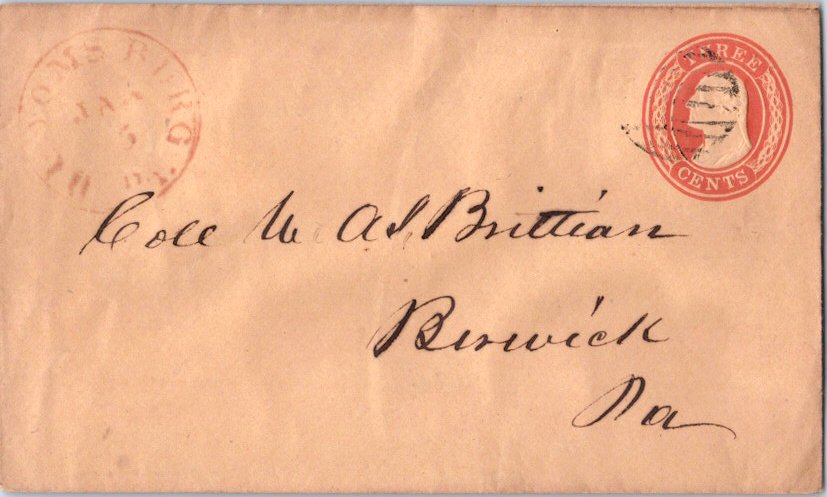 BLOOMSBURG
JAN
5
Pa.
THREE
CENTS
Cole W A S Brittian
Berwick
Pa